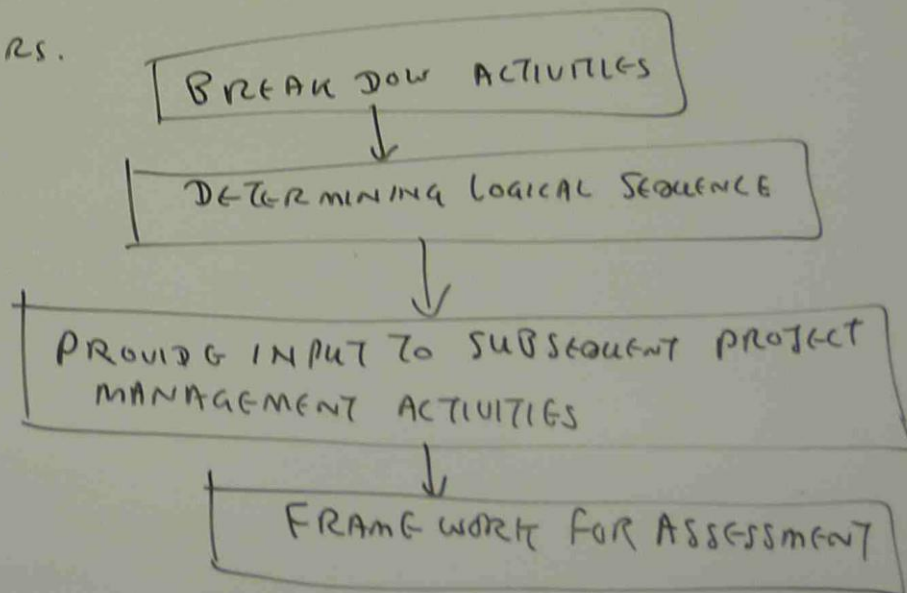 RS.
BREAK DOW ACTIVITIES
DETERMINING LOGICAL SEQUENCE
PROVIDE INPUT TO SUBSEQUENT PROJECT
MANAGEMENT ACTIVITIES
FRAME WORK FOR ASSESSMENT